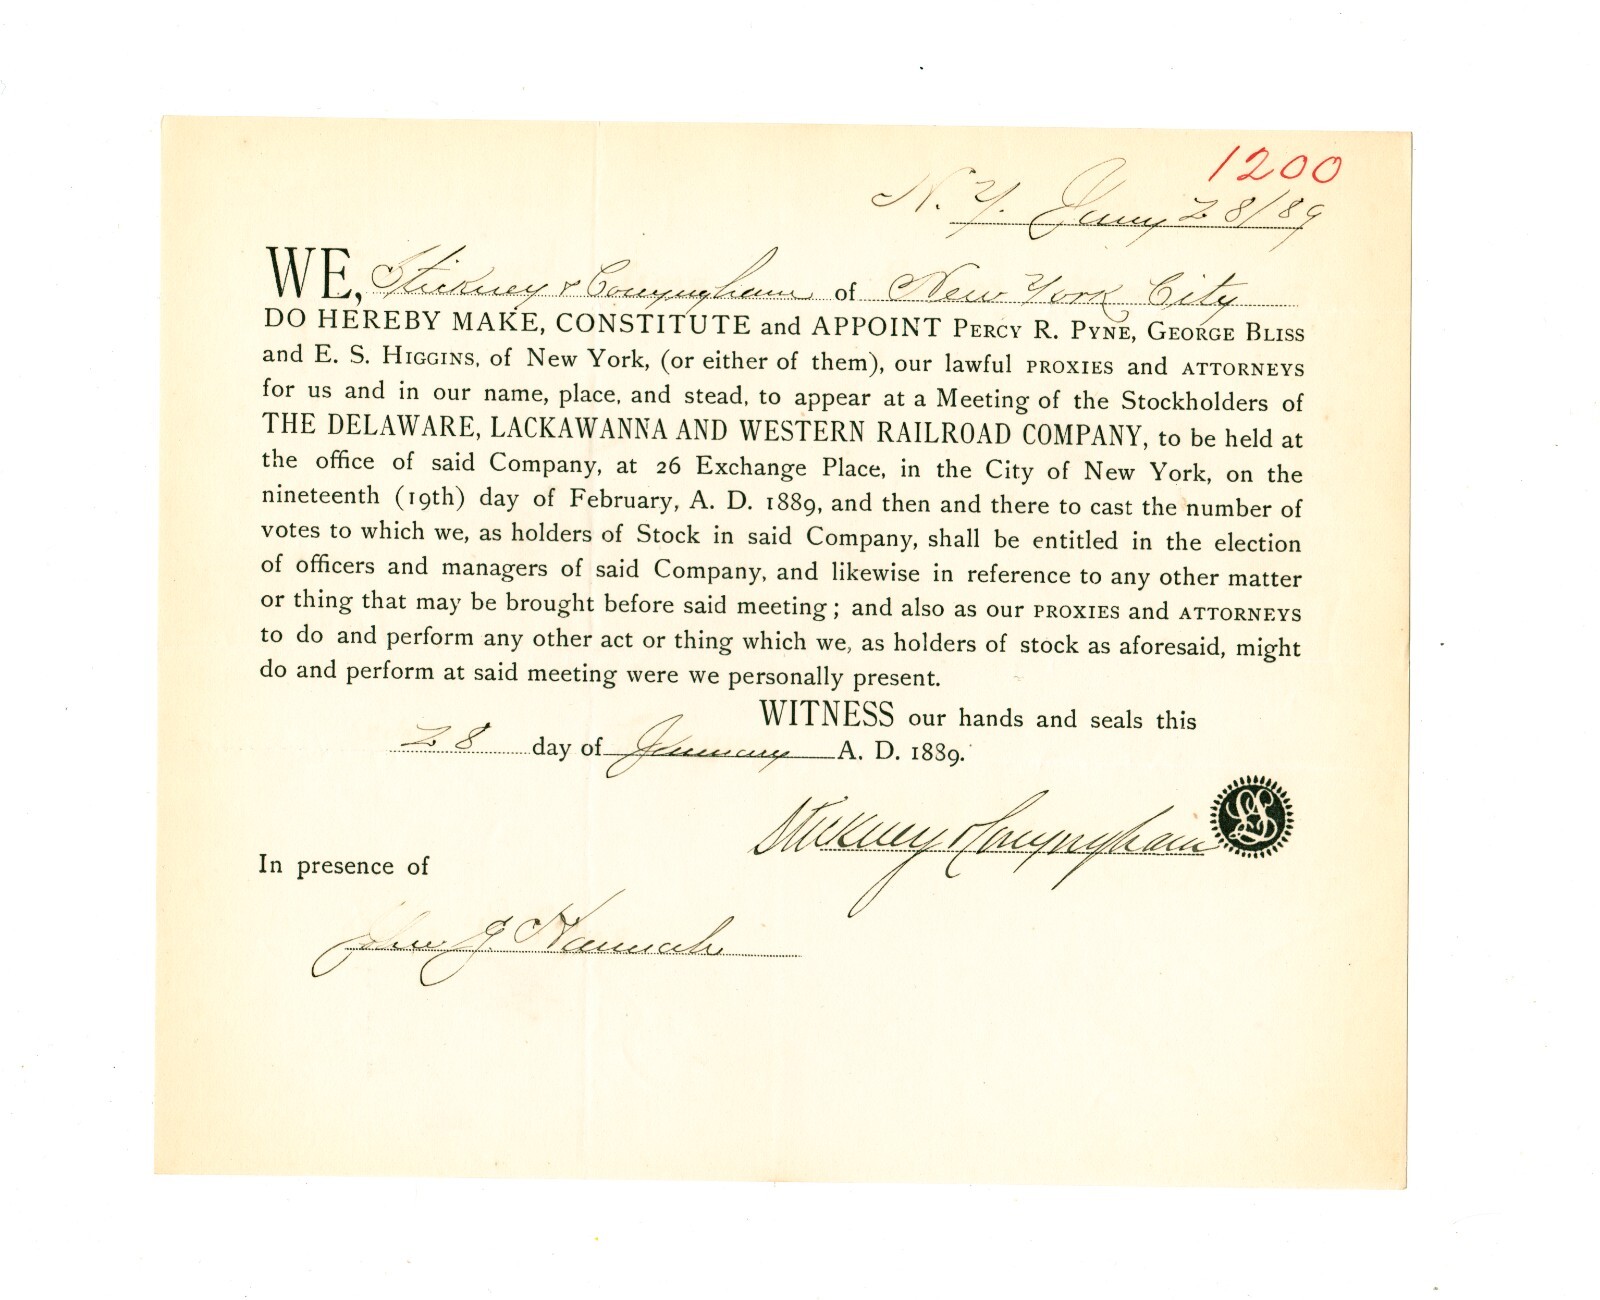 1200
N. Y. Jany 28/89
WE, Stickney & Conyngham of New York City
DO HEREBY MAKE, CONSTITUTE and APPOINT PERCY R. PYNE, GEORGE BLISS
and E. S. HIGGINS, of New York, (or either of them), our lawful PROXIES and ATTORNEYS
for us and in our name, place, and stead, to appear at a Meeting of the Stockholders of
THE DELAWARE, LACKAWANNA AND WESTERN RAILROAD COMPANY, to be held at
the office of said Company, at 26 Exchange Place, in the City of New York, on the
nineteenth (19th) day of February, A. D. 1889, and then and there to cast the number of
votes to which we, as holders of Stock in said Company, shall be entitled in the election
of officers and managers of said Company, and likewise in reference to any other matter
or thing that may be brought before said meeting; and also as our PROXIES and ATTORNEYS
to do and perform any other act or thing which we, as holders of stock as aforesaid, might
do and perform at said meeting were we personally present.
WITNESS our hands and seals this
28 day of January A. D. 1889.
Stickney & Conyngham
LS
In presence of
J Hannah